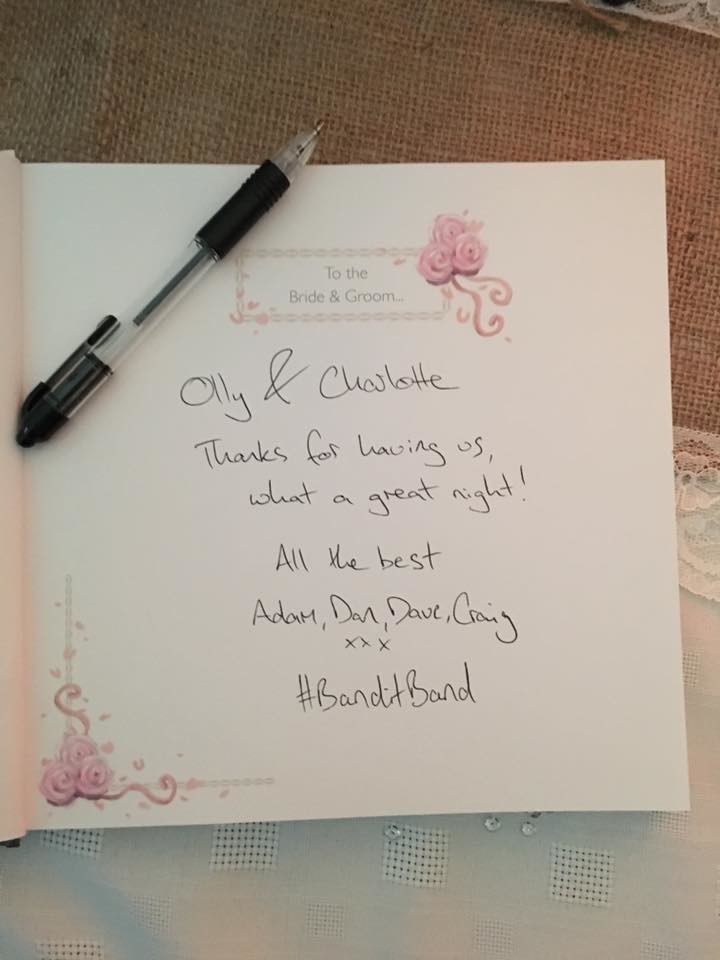 To the
Bride & Groom...
Olly & Charlotte
Thanks for having us,
what a great night!
All the best
Adam, Dan, Dave, Craig
xxx
#BanditBand